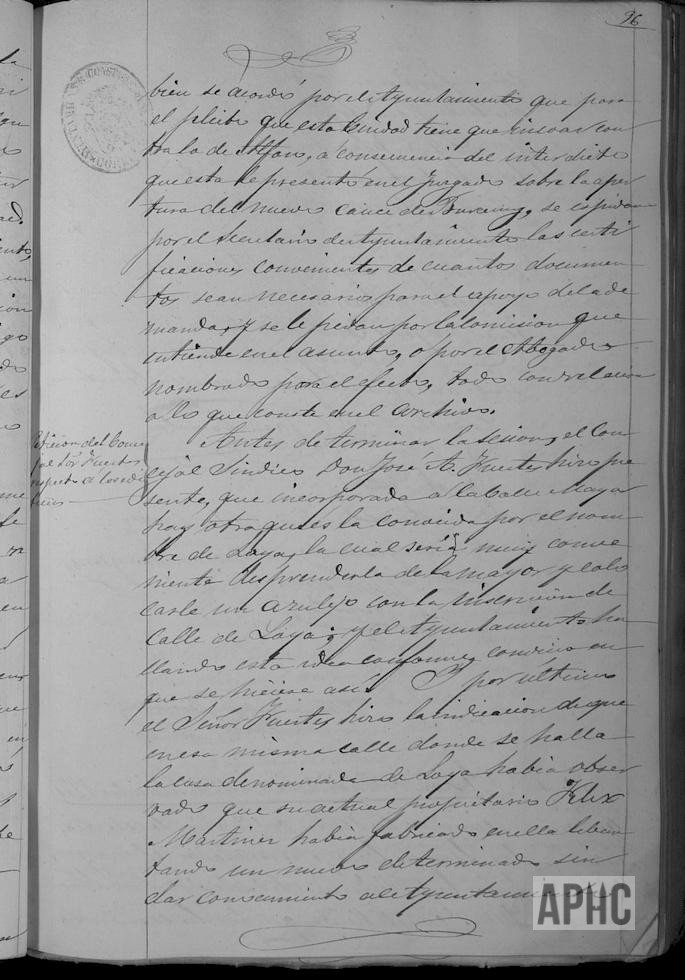 96
bien se acordó por el Ayuntamiento que para
el pleito que esta Ciudad tiene que incoar con
tra la de Alfaro, a consecuencia del interdicto
que esta le presentó en el Juzgado sobre la aper
tura del nuevo cauce de se espidan
por el Secretario de Ayuntamiento las certi
ficaciones convenientes de cuantos documen
tos sean necesarios para el apoyo de la de
manda, y se le pidan por la Comision que
entiende en el asunto, o por el Abogado
nombrado para el efecto, todo con relacion
a lo que conste en el archivo.
Antes de terminar la sesion, el Con
cejal Sindico Don José A. Fuertes hizo pre
sente, que incorporada a la Calle Mayor
hay otra que es la conocida por el nom
bre de Laya, la cual sería muy conve
niente desprenderla de la mayor y colo
carle un azulejo con la inscripcion de
Calle de Laya; y el Ayuntamiento ha
llando esta idea conforme, convino en
que se hiciese asi. Y por último
el Señor Fuertes hizo la indicacion de que
en esa misma calle donde se halla
la casa denominada de Laya habia obser
vado que su actual propietario Felix
Martinez habia fabricado en ella leban
tando un nuevo determinado sin
dar conocimiento al Ayuntamiento
del Conce
jal Sor Fuertes
respecto a
APHC